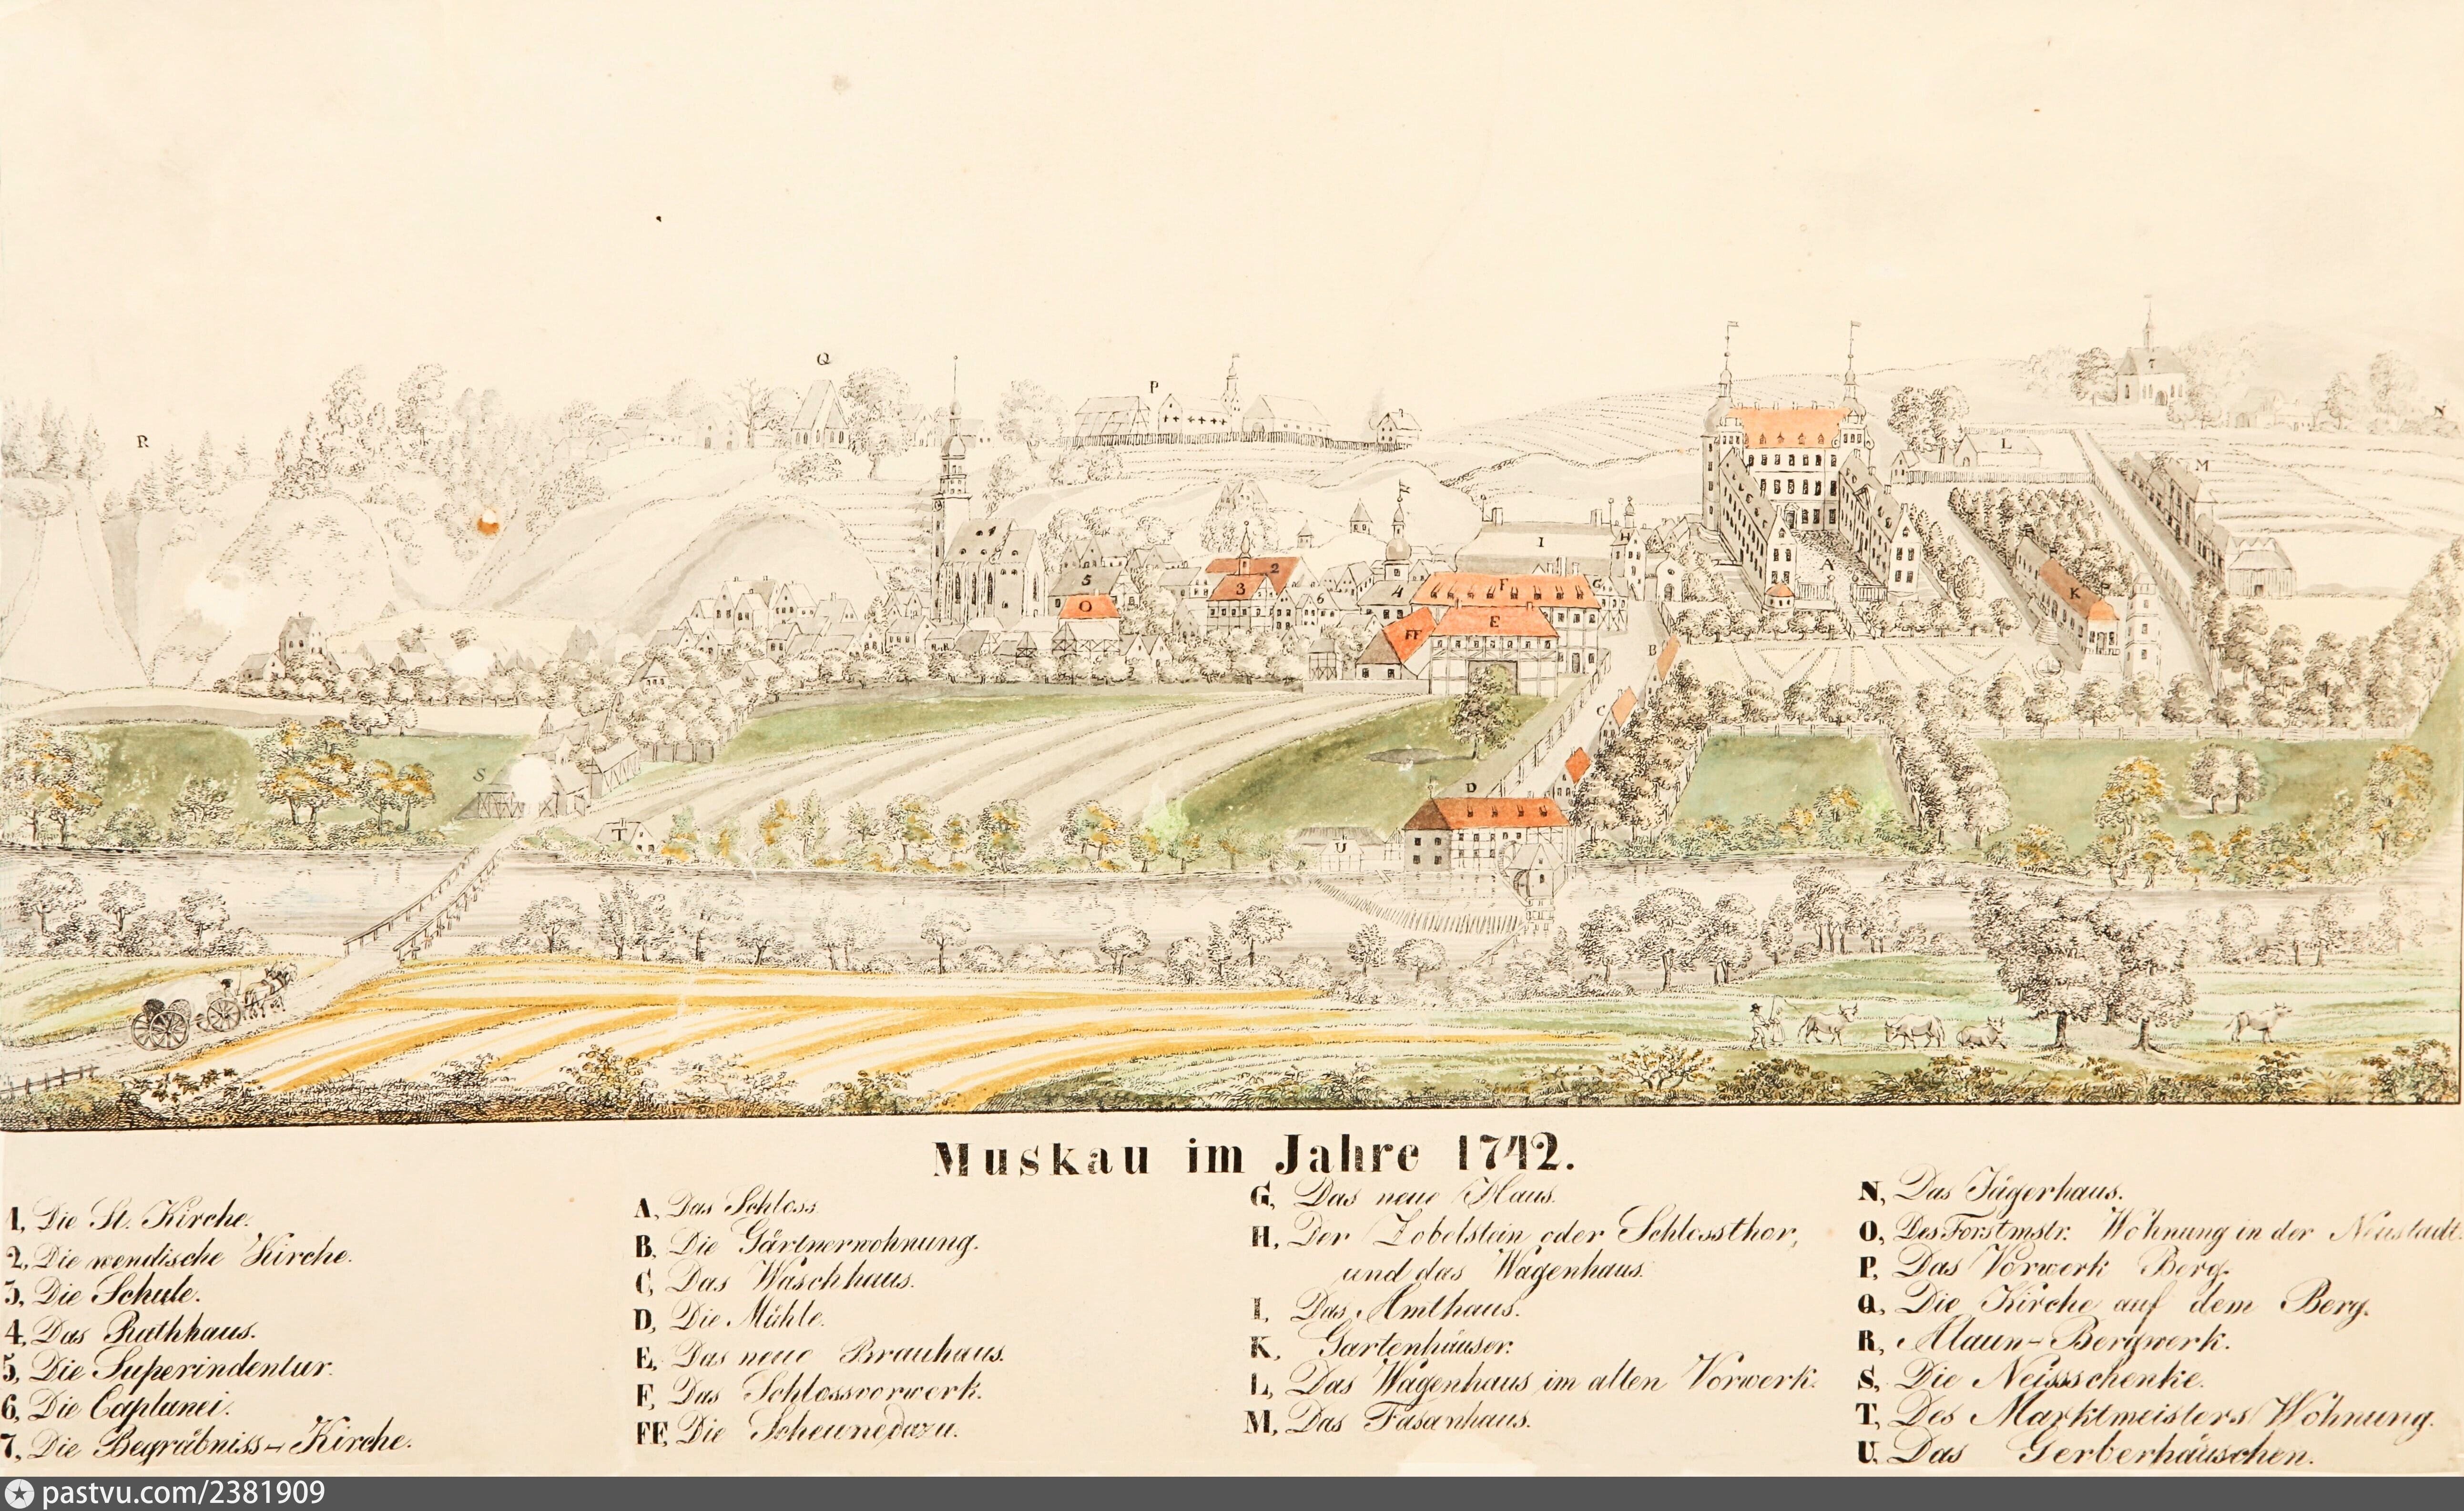 Q
P
R
N
7
L
M
1
I
H
A
5
O
2
3
6
4
F
G
FF
E
K
B
C
S
D
T
U
Muskau im Jahre 1742.
1, Die St. Kirche.
2, Die wendische Kirche.
3, Die Schule.
4, Das Rathhaus.
5, Die Superindentur.
6, Die Caplanei.
7, Die Begräbniss-Kirche.
A, Das Schloss
B, Die Gärtnerwohnung.
C, Das Waschhaus.
D, Die Mühle.
E, Das neue Brauhaus.
F, Das Schlossvorwerk.
FF, Die Scheune dazu.
G, Das neue Haus.
H, Der Zobelstein oder Schlossthor,
und das Wagenhaus.
I, Das Amthaus.
K, Gartenhäuser.
L, Das Wagenhaus im alten Vorwerk.
M, Das Fasanhaus.
N, Das Jägerhaus.
O, Des Forstmstr. Wohnung in der Neustadt.
P, Das Vorwerk Berg.
Q, Die Kirche auf dem Berg.
R, Alaun-Bergwerk.
S, Die Neissschenke.
T, Des Marktmeisters Wohnung.
U, Das Gerberhäuschen.
pastvu.com/2381909